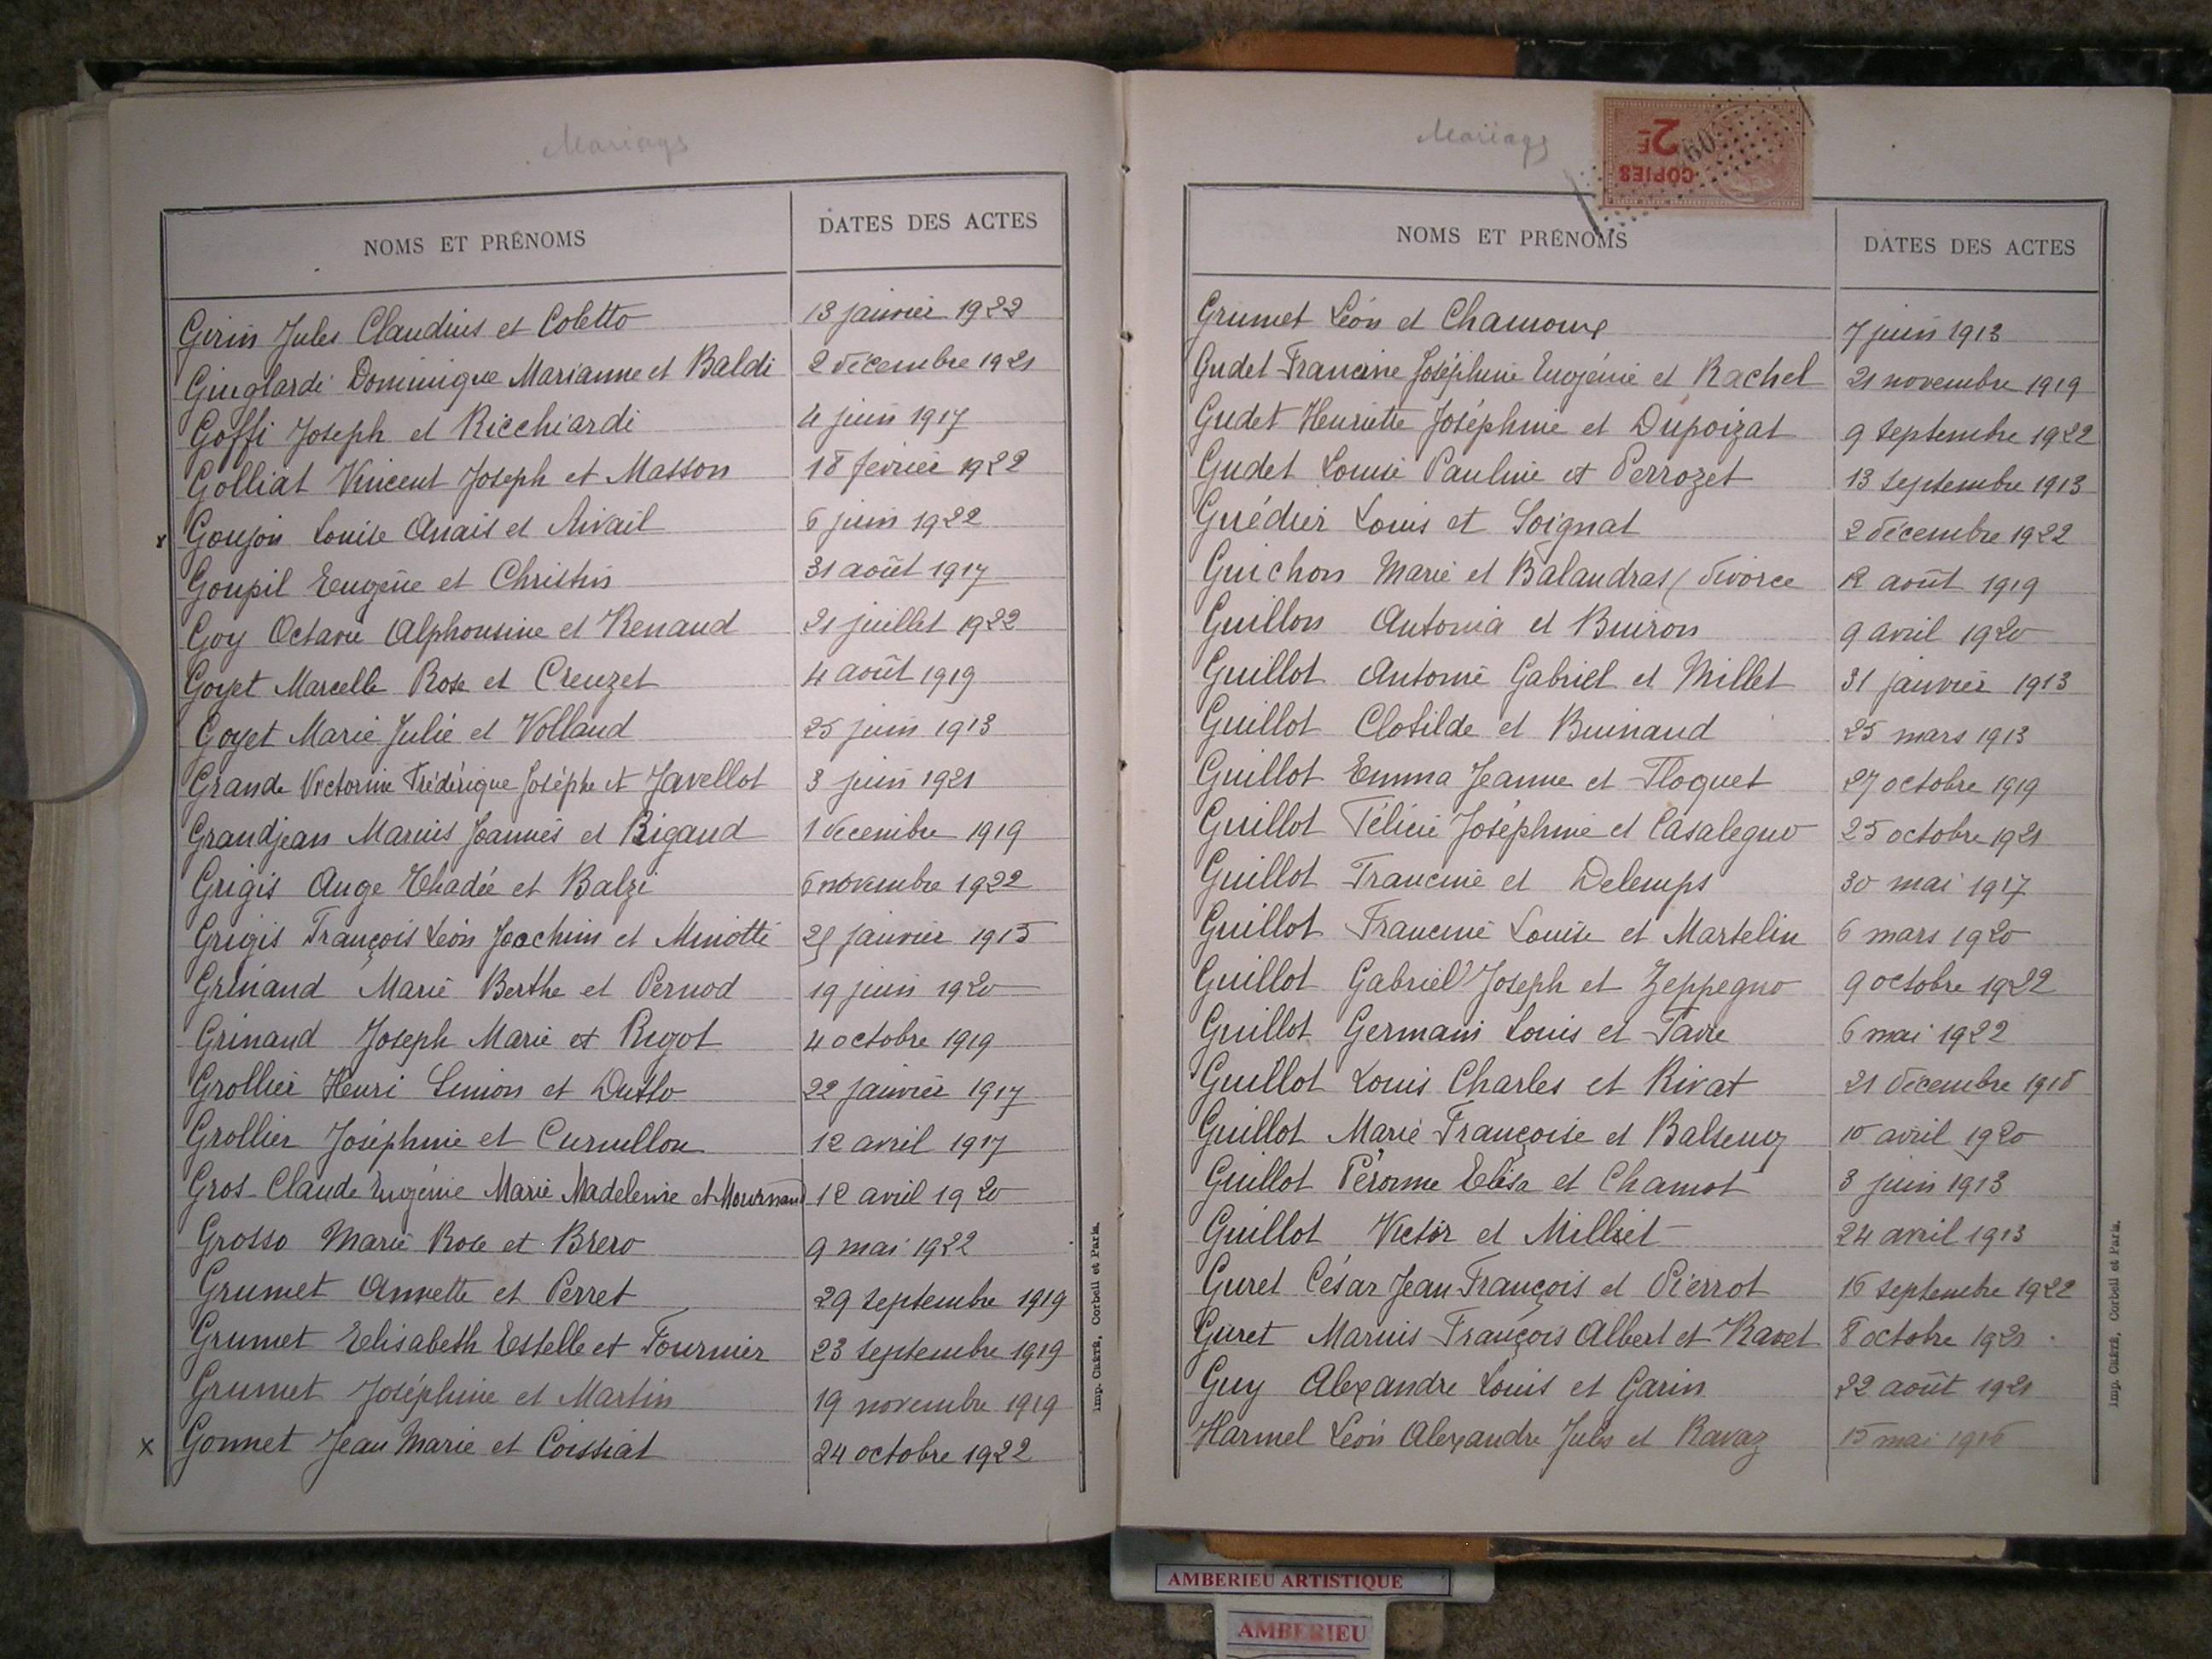 Mariages
NOMS ET PRÉNOMS DATES DES ACTES
Girin Jules Claudius et Coletto 13 janvier 1922
Giuglardi Dominique Marianne et Baldi 2 décembre 1921
Goffi Joseph et Ricchiardi 4 juin 1917
Golliat Vincent Joseph et Masson 18 février 1922
x Goujon Louise Anais et Rivail 6 juin 1922
Goupil Eugène et Christin 31 août 1917
Goy Octavie Alphonsine et Renaud 21 juillet 1922
Goyet Marcelle Rose et Creuzet 4 août 1919
Goyet Marie Julie et Volland 25 juin 1913
Grande Victorine Frédérique Josèphe et Javellot 3 juin 1921
Grandjean Marius Joannès et Rigaud 1 décembre 1919
Grigis Ange Thadée et Balzi 6 novembre 1922
Grigis François Léon Joachim et Miniotti janvier 1915
Grinand Marie Berthe et Pernod 19 juin 1920
Grinand Joseph Marie et Rigot 4 octobre 1919
Grollier Henri Simon et 22 janvier 1917
Grollier Joséphine et 12 avril 1917
Gros-Claude Eugénie Marie Madeleine et Mournaud 12 avril 1920
Grosso Marie Rose et Brero 9 mai 1922
Grumet Annette et Perret 29 septembre 1919
Grumet Elisabeth Estelle et Fournier 23 septembre 1919
Grumet Joséphine et Martin 19 novembre 1919
x Gonnet Jean Marie et Coissiat 24 octobre 1922
Imp. CRÉTÉ, Corbeil et Paris.
Mariages
COPIES
2F
60
NOMS ET PRÉNOMS DATES DES ACTES
Grumet Léon et Chamoux 7 juin 1913
Gudet Francine Joséphine Eugénie et Rachel 21 novembre 1919
Gudet Henriette Joséphine et Dupoizat 9 septembre 1922
Gudet Louise Pauline et Perrozet 13 septembre 1913
Guédier Louis et Soignat 2 décembre 1922
Guichon Marie et Balandras / divorce 12 août 1919
Guillon Antonia et Buiron 9 avril 1920
Guillot Antoine Gabriel et Millet 31 janvier 1913
Guillot Clotilde et Buinand 25 mars 1913
Guillot Emma Jeanne et Floquet 27 octobre 1919
Guillot Félicie Joséphine et Casalegno 25 octobre 1921
Guillot Francine et Delemps 30 mai 1917
Guillot Francine Louise et Martelin 6 mars 1920
Guillot Gabriel Joseph et Zeppegno 9 octobre 1922
Guillot Germain Louis et Favre 6 mai 1922
Guillot Louis Charles et Rivat 21 décembre 1918
Guillot Marie Françoise et 10 avril 1920
Guillot Péronne Elisa et Chamot 3 juin 1913
Guillot Victor et Milliet 24 avril 1913
Guret César Jean François et Pierrot 16 septembre 1922
Guret Marius François Albert et Ravet 8 octobre 1921
Guy Alexandre Louis et Garin 22 août 1921
Harmel Léon Alexandre Jules et Ravaz 15 mai 1916
Imp. CRÉTÉ, Corbeil et Paris.
AMBERIEU ARTISTIQUE
AMBERIEU